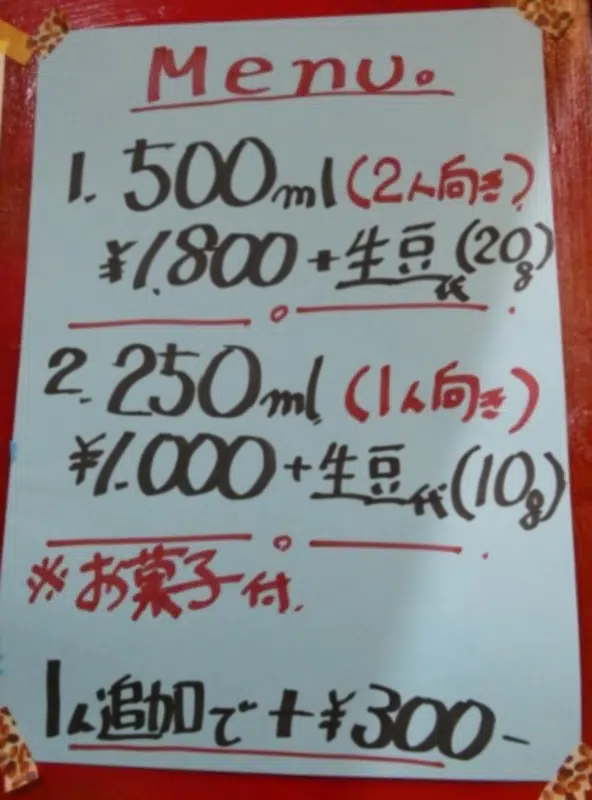 Menu。
1. 500ml(2人向き)
¥1.800+生豆代(20g)
2. 250ml(1人向き)
¥1.000+生豆代(10g)
※お菓子付.
1人追加で+¥300-